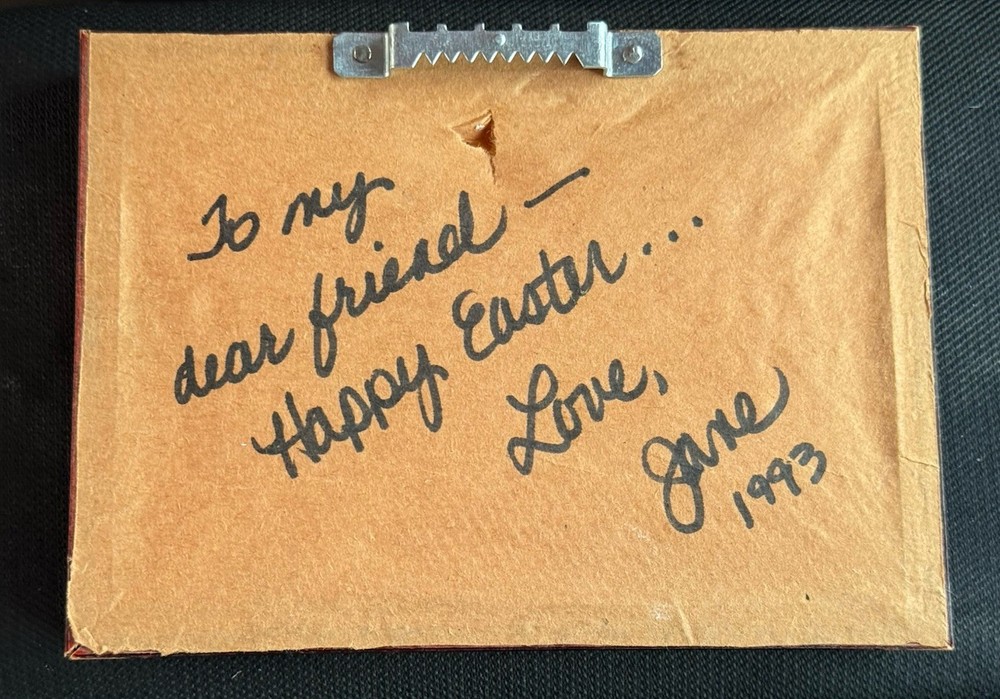 To my
dear friend —
Happy Easter....
Love,
Jane
1993